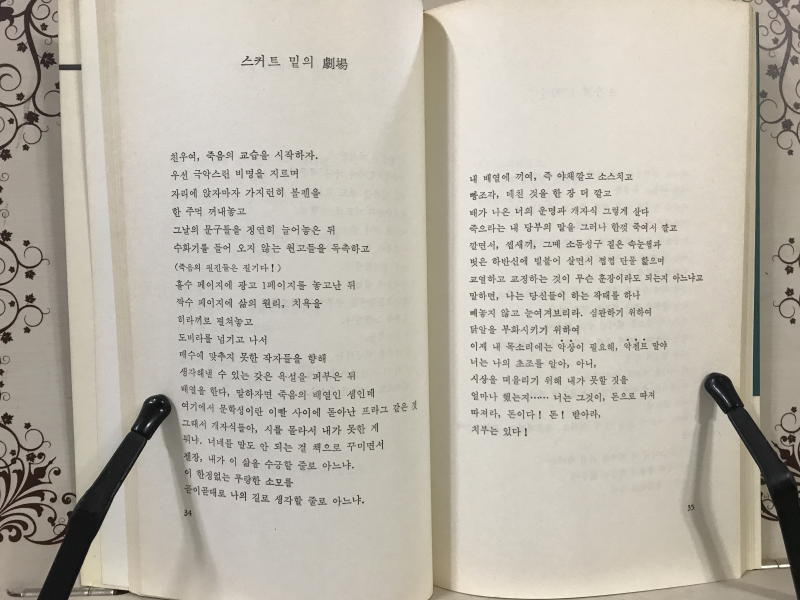 스커트 밑의 劇場
친우여, 죽음의 교습을 시작하자.
우선 극악스런 비명을 지르며
자리에 앉자마자 가지런히 볼펜을
한 주먹 꺼내놓고
그날의 문구들을 정연히 늘어놓은 뒤
수화기를 들어 오지 않는 원고들을 독촉하고
(죽음의 필진들은 질기다!)
홀수 페이지에 광고 1페이지를 놓고난 뒤
짝수 페이지에 삶의 원리, 치욕을
히라끼로 펼쳐놓고
도비라를 넘기고 나서
매수에 맞추지 못한 작자들을 향해
생각해낼 수 있는 갖은 욕설을 퍼부은 뒤
배열을 한다, 말하자면 죽음의 배열인 셈인데
여기에서 문학성이란 이빨 사이에 돋아난 프라그 같은 것
그래서 개자식들아, 시를 몰라서 내가 못한 게
뭐냐. 너네들 말도 안 되는 걸 책으로 꾸미면서
젠장, 내가 이 삶을 수긍할 줄로 아느냐.
이 한정없는 무량한 소모를
곧이곧대로 나의 길로 생각할 줄로 아느냐.
34
내 배열에 끼여, 즉 야채깔고 소스치고
빵조각, 데친 것을 한 장 더 깔고
배가 나온 너의 운명과 개자식 그렇게 산다
죽으라는 내 당부의 말을 그러나 한껏 죽여서 깔고
깔면서, 씹새끼, 그때 소돔성구 짙은 속눈썹과
벗은 하반신에 빌붙어 살면서 쩝쩝 단물 핥으며
교열하고 교정하는 것이 무슨 훈장이라도 되는지 아느냐고
말하면, 나는 당신들이 하는 작태를 하나
빼놓지 않고 눈여겨보리라. 심판하기 위하여
닭알을 부화시키기 위하여
이제 내 목소리에는 악상이 필요해, 악센트 말야
너는 나의 초조를 알아, 아니,
시상을 떠올리기 위해 내가 못할 짓을
얼마나 했는지…… 너는 그것이, 돈으로 따져
따져라, 돈이다! 돈! 받아라,
치부는 있다!
35